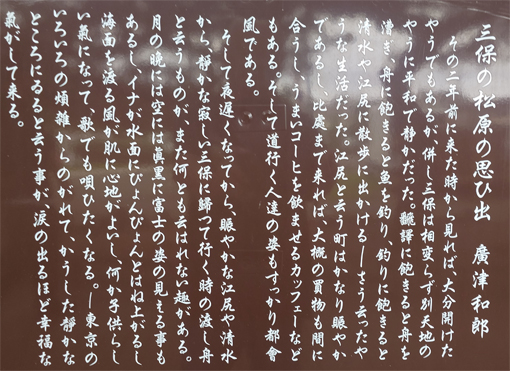 三保の松原の思ひ出　廣津和郎
その二年前に来た時から見れば、大分開けた
やうでもあるが、併し三保は相変らず別天地の
やうに平和で静かだった。飜譯に飽きると舟を
漕ぎ、舟に飽きると魚を釣り、釣りに飽きると
清水や江尻に散歩に出かける―さう云ったや
うな生活だった。江尻と云う町はかなり賑やか
であるし、此處まで来れば、大概の買物も間に
合うし、うまいコーヒを飲ませるカッフェーなど
もある。そして道行く人達の姿もすっかり都會
風である。
そして夜遅くなってから、賑やかな江尻や清水
から、静かな寂しい三保に歸つて行く時の渡し舟
と云うものが、また何とも云はれない趣がある。
月の晩には空には眞黒に富士の姿の見える事も
あるし、イナが水面にぴょんぴょんとはね上がるし
海面を渡る風が肌に心地がよいし、何か子供らし
い氣になって、歌でも唄ひたくなる。―東京の
いろいろの煩雑からのがれて、かうした静かな
ところにゐると云う事が、涙の出るほど幸福な
氣がして来る。